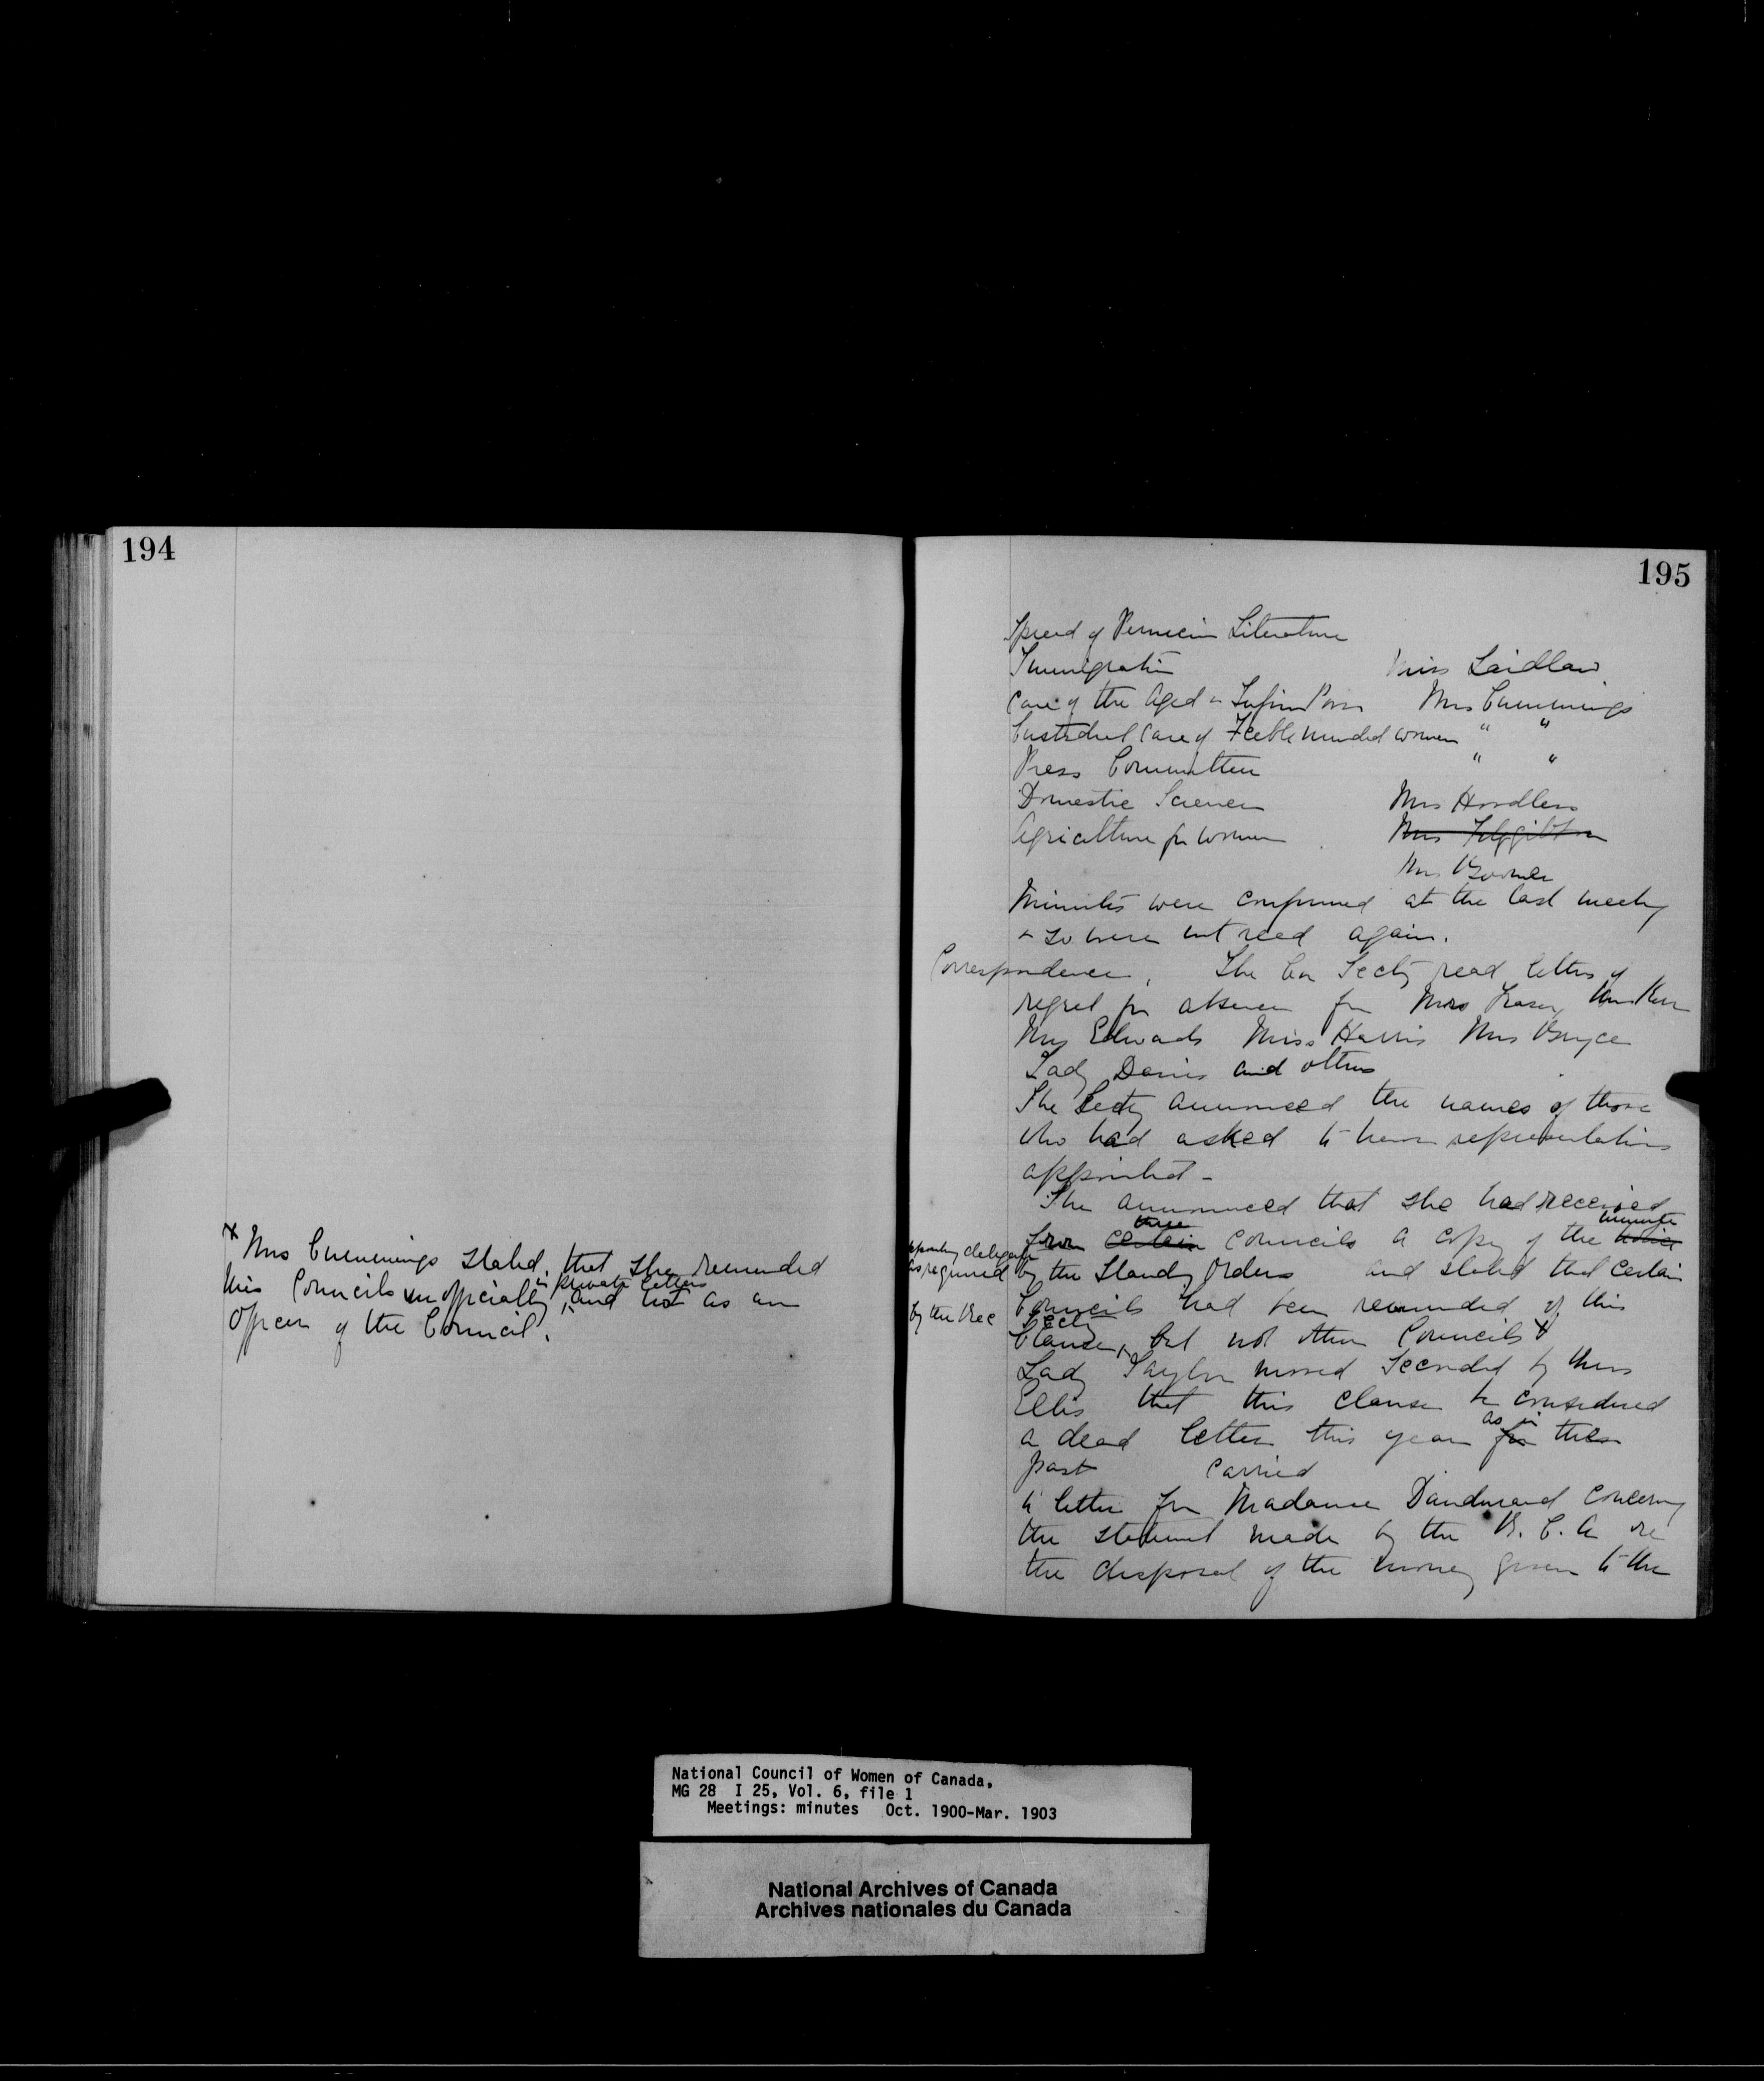 194
x Mrs Cummings stated that she reminded
this Councils unofficially in private letters and not as an
Officer of the Council.
195
Spread of Pernicious Literature
Immigration Miss Laidlaw
Care of the Aged & Infirm Poor Mrs Cummings
Custodial Care of Feeble minded women " "
Press Committee " "
Domestic Science Mrs Hoodless
Agriculture for women Mrs Fitzgibbon
Mrs Boomer
Minutes were confirmed at the last meeting
& so were not read again.
Correspondence. The Cor Secty read letters of
regret for absence fr Mrs Fraser, Mrs Kerr
Mrs Edwards Miss Harris Mrs Bryce
Lady Davies and others
The Secty announced the names of those
who had asked to have representatives
appointed -
She announced that she had received
from certain three Councils a copy of the notice minute
appointing delegates
as required by the Standing Orders and stated that certain
Councils had been reminded of this
by the Rec Secty
Clause, but not other Councils x
Lady Taylor moved seconded by Mrs
Ellis that this clause be considered
a dead letter this year for as in the
past Carried
A letter fr Madame Dandurand concerning
the statement made by the B. C. A re
the disposal of the money given to the
National Council of Women of Canada,
MG 28 I 25, Vol. 6, file 1
Meetings: minutes Oct. 1900-Mar. 1903
National Archives of Canada
Archives nationales du Canada